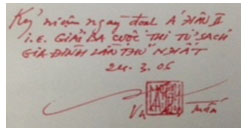 Kỷ niệm ngày đoạt Á NHÂN II
i.e. GIẢI BA CUỘC THI TỦ SÁCH
GIA ĐÌNH LẦN THỨ NHẤT
24.3.06